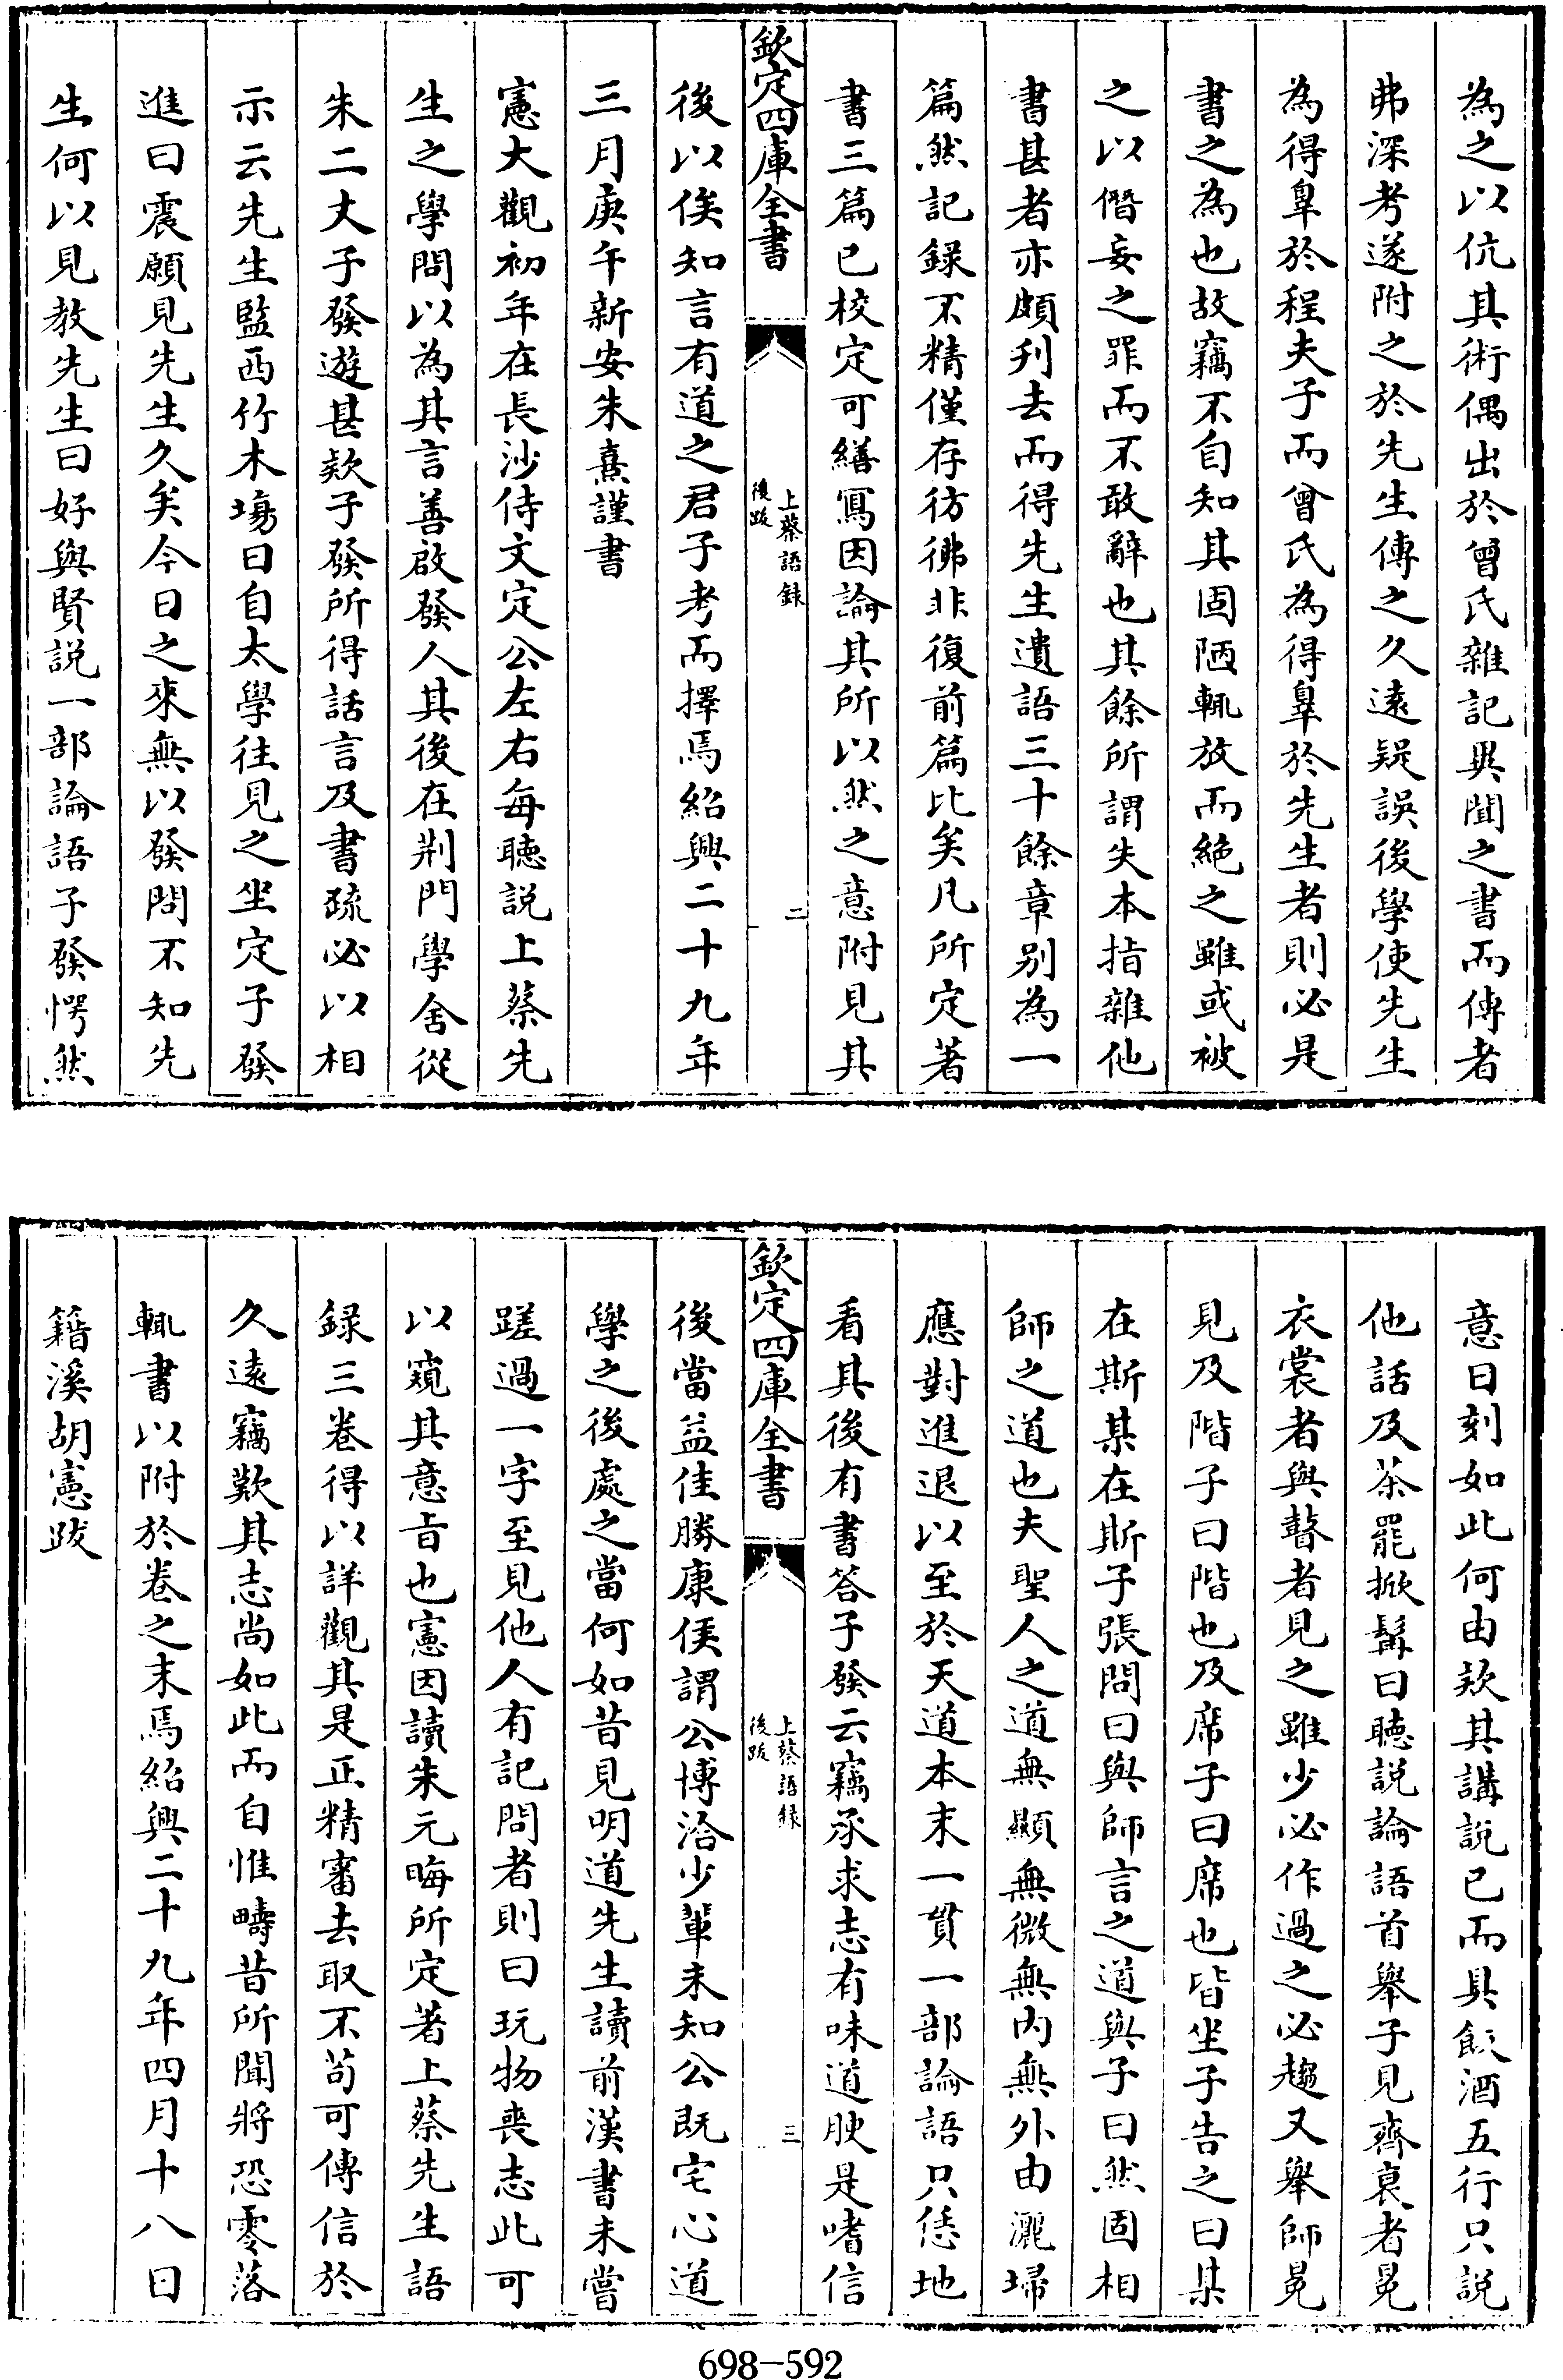 為之以伉其術偶出於曾氏雜記異聞之書而傳者
弗深考遂附之於先生傳之久遠疑誤後學使先生
為得辠於程夫子而曾氏為得辠於先生者則必是
書之為也故竊不自知其固陋輒放而絶之雖或被
之以僭妄之罪而不敢辭也其餘所謂失本指雜他
書甚者亦頗刋去而得先生遺語三十餘章别為一
篇然記録不精僅存彷彿非復前篇比矣凡所定著
書三篇已校定可繕寫因論其所以然之意附見其
欽定四庫全書
上蔡語録
後跋
二
後以俟知言有道之君子考而擇焉紹興二十九年
三月庚午新安朱熹謹書
憲大觀初年在長沙侍文定公左右每聽説上蔡先
生之學問以為其言善啟發人其後在荆門學舍從
朱二丈子發遊甚欵子發所得話言及書疏必以相
示云先生監西竹木塲日自太學往見之坐定子發
進曰震願見先生久矣今日之來無以發問不知先
生何以見教先生曰好與賢説一部論語子發愕然
意日刻如此何由欵其講説已而具飲酒五行只説
他話及茶罷掀髯曰聽説論語首舉子見齊衰者冕
衣裳者與瞽者見之雖少必作過之必趨又舉師冕
見及階子曰階也及席子曰席也皆坐子告之曰某
在斯某在斯子張問曰與師言之道與子曰然固相
師之道也夫聖人之道無顯無微無内無外由灑埽
應對進退以至於天道本末一貫一部論語只恁地
看其後有書答子發云竊承求志有味道腴是嗜信
欽定四庫全書
上蔡語録
後跋
三
後當益佳勝康侯謂公博洽少輩未知公既宅心道
學之後處之當何如昔見明道先生讀前漢書未嘗
蹉過一字至見他人有記問者則曰玩物喪志此可
以窺其意㫖也憲因讀朱元晦所定著上蔡先生語
録三卷得以詳觀其是正精審去取不苟可傳信於
久遠竊歎其志尚如此而自惟疇昔所聞將恐零落
輒書以附於卷之末焉紹興二十九年四月十八日
籍溪胡憲跋
698-592